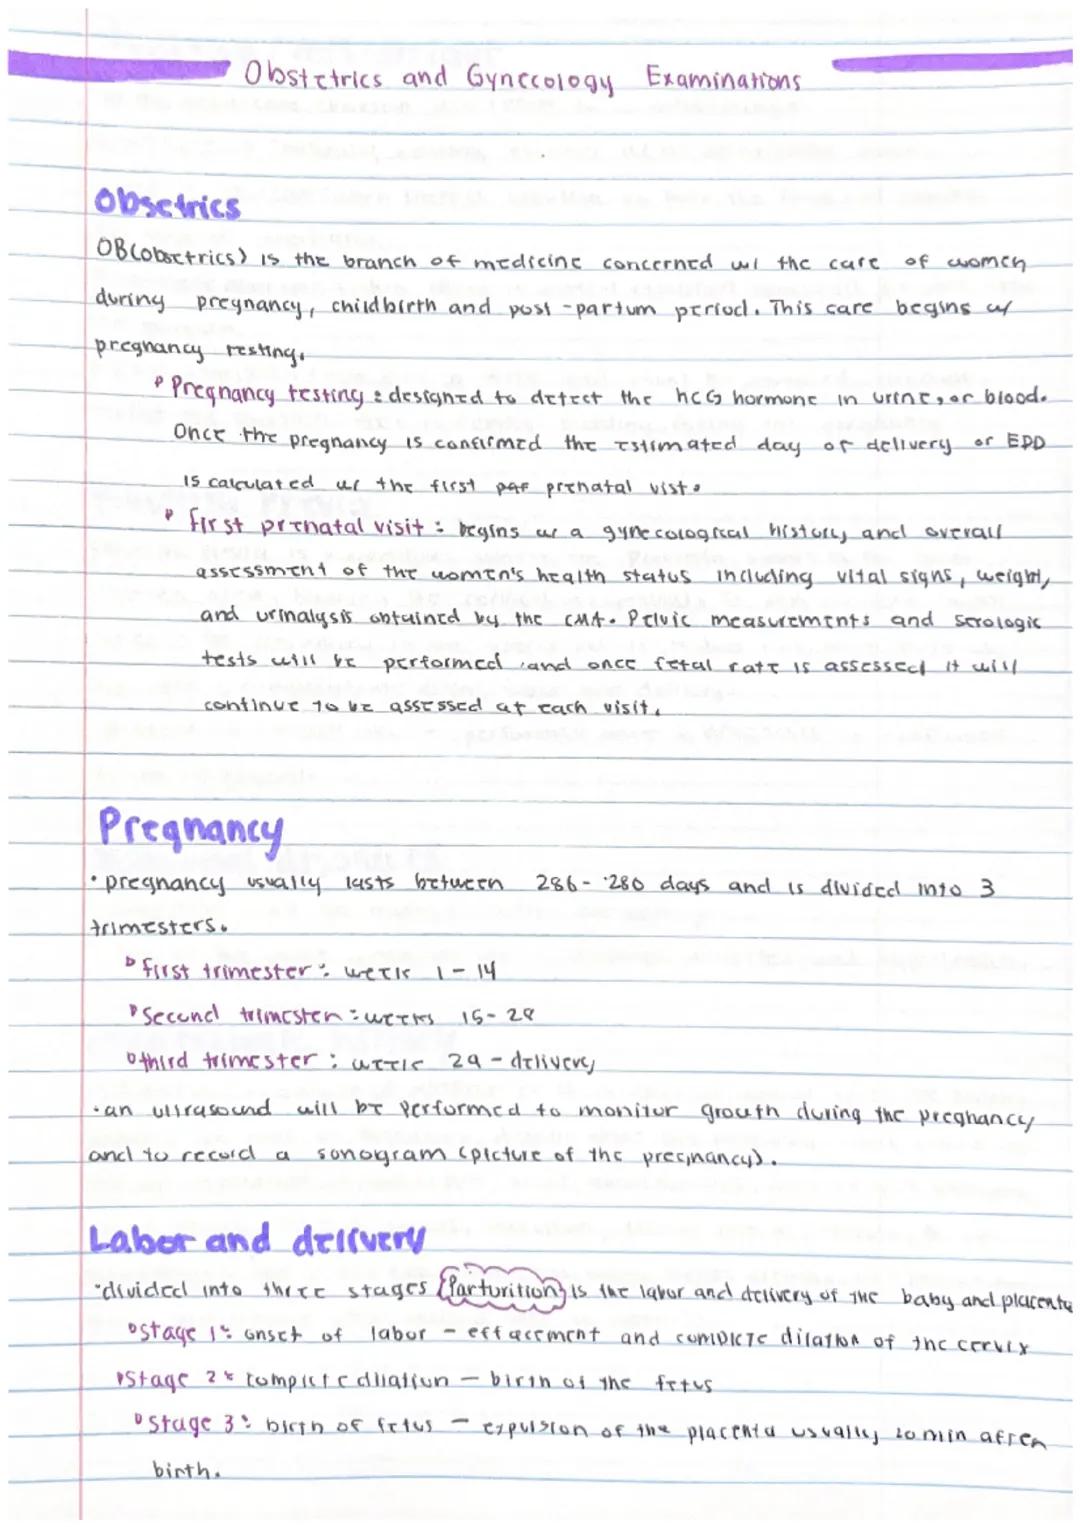 Obstetrics and Gynecology Examinations
Obsetrics
OB(obsetrics) is the branch of medicine concerned w/ the care of women
during pregnancy, childbirth and post-partum period. This care begins w/
pregnancy testing.
Pregnancy testing: designed to detect the hCG hormone in urine, or blood.
Once the pregnancy is confirmed the estimated day of delivery or EDD
is calculated w/ the first prenatal vist.
first prenatal visit: begins w/ a gynecological history and overall
assessment of the women's health status including vital signs, weight,
and urinalysis obtained by the CMA. Pelvic measurements and serologic
tests will be performed and once fetal rate is assessed it will
continue to be assessed at each visit.
Pregnancy
• pregnancy usually lasts between 286-280 days and is divided into 3
trimesters.
first trimester: week 1-14
Second trimester: weeks 15-28
third trimester: week 29-delivery
• an ultrasound will be performed to monitor growth during the pregnancy
and to record a sonogram (picture of the pregnancy).
Labor and delivery
• divided into three stages (Parturition) is the labor and delivery of the baby and placenta
Stage 1: onset of labor - effacement and complete dilation of the cervix
Stage 2: complete dilation - birth of the fetus
Stage 3: birth of fetus - expulsion of the placenta usually 20 min after
birth.